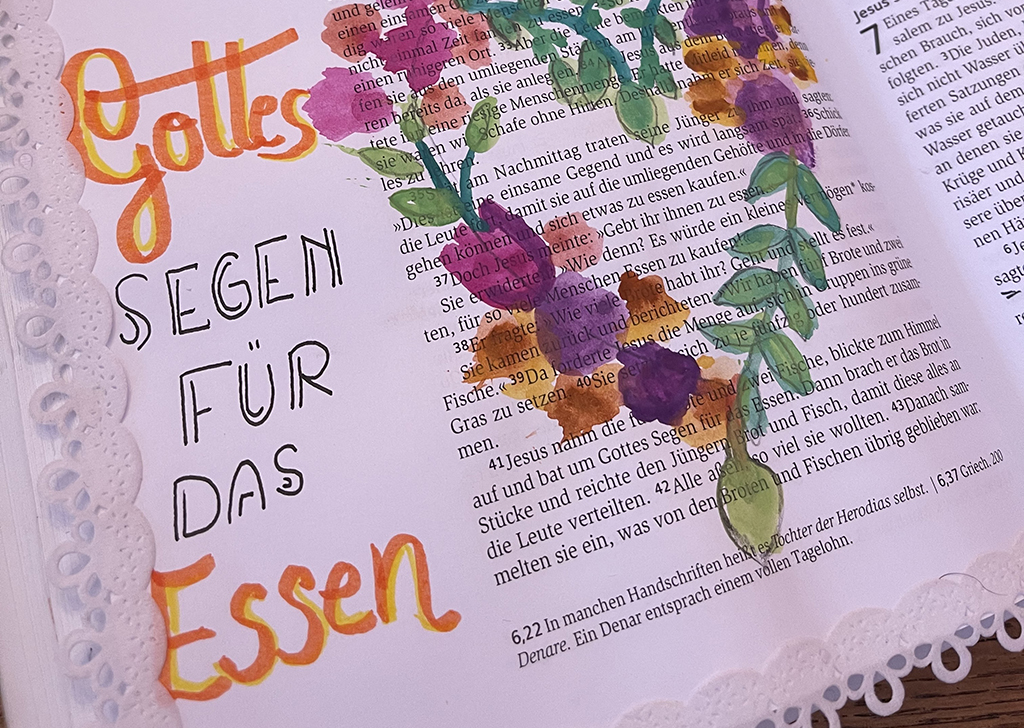 Gottes
SEGEN
FÜR
DAS
Essen
einen einsamen
so viele
dig waren so viele
nicht einmal Zeit
einen ruhigeren Ort. 33Aber die
fen sie aus den umliegenden Städten am
ren bereits da, als sie anlegten.
tete eine riesige Menschenmenge
sie waren wie Schafe ohne Hirten. Deshalb nahm er sich Zeit,
les zu
am Nachmittag traten seine Jünger zu ihm und sagten:
»Dies ist eine einsame Gegend und es wird langsam spät. 36Schick
die Leute damit sie auf die umliegenden Gehöfte und in die Dörfer
gehen können und sich etwas zu essen kaufen.«
37Doch Jesus meinte: »Gebt ihr ihnen zu essen.
Sie erwiderten »Wie denn? Es würde ein kleines Vermögen* kos-
ten, für so viele Menschen Essen zu kaufen!«
38Er fragte: »Wie viele habt ihr? Geht und stellt es fest.«
Sie kamen zurück und berichteten: »Wir haben fünf Brote und zwei
Fische.« 39Da forderte Jesus die Menge auf, sich in Gruppen ins grüne
Gras zu setzen. 40Sie sich zu je fünfzig oder hundert zusam-
men.
41Jesus nahm die und zwei Fische, blickte zum Himmel
auf und bat um Gottes Segen für das Essen. Dann brach er das Brot in
Stücke und reichte den Jüngern Brot und Fisch, damit diese alles an
die Leute verteilten. 42Alle aßen, so viel sie wollten. 43Danach sam-
melten sie ein, was von den Broten und Fischen übrig geblieben war.
6,22 In manchen Handschriften heißt es Tochter der Herodias selbst. | 6,37 Griech. 200
Denare. Ein Denar entsprach einem vollen Tagelohn.
Jesus
7 Eines Tage
salem zu Jesus.
schen Brauch, sich vo
folgten. 3Die Juden,
sich nicht Wasser ü
ferten Satzungen
was sie auf dem
Wasser getauch
an denen sie
Krüge und
risäer und
sere über
nen Hä
6Je
sagte